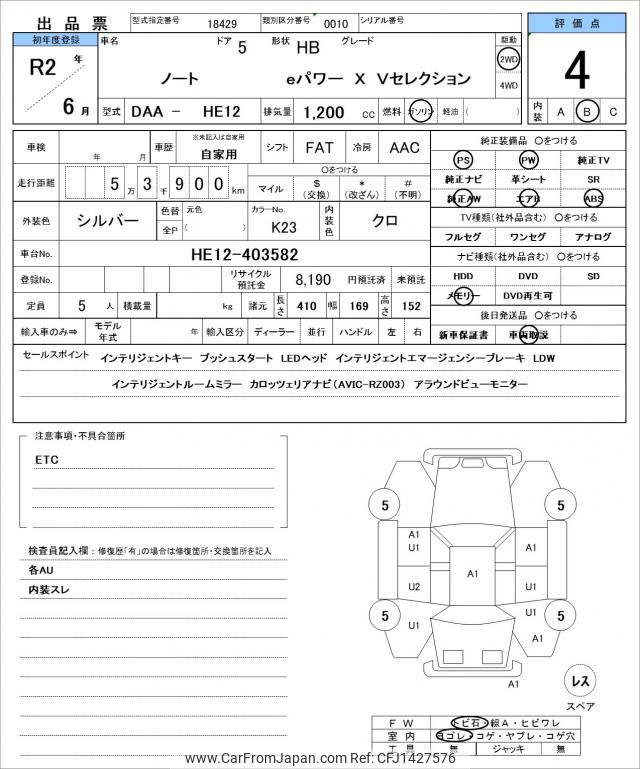 出品票
型式指定番号 18429 類別区分番号 0010 シリアル番号
評価点
4
内装 A B C
初年度登録
R2 年
6 月
車名 ドア 5 形状 HB グレード
ノート eパワー X Vセレクション
駆動
2WD
4WD
型式 DAA - HE12 排気量 1,200 cc 燃料 ガソリン 軽油 ( )
車検 年 月 車歴 ※未記入は自家用 自家用 シフト FAT 冷房 AAC
走行距離 5万3千900km マイル
○をつける
$ (交換) * (改ざん) # (不明)
外装色 シルバー 色替 元色 全P ( ) カラーNo. K23 内装色 クロ
車台No. HE12-403582
登録No. リサイクル預託金 8,190 円預託済 未預託
定員 5 人 積載量 kg 諸元 長さ 410 幅 169 高さ 152
輸入車のみ⇒ モデル年式 年 輸入区分 ディーラー 並行 ハンドル 左 右
純正装備品 ○をつける
PS PW 純正TV
純正ナビ 革シート SR
純正AW エアB ABS
TV種類(社外品含む) ○をつける
フルセグ ワンセグ アナログ
ナビ種類(社外品含む) ○をつける
HDD DVD SD
メモリー DVD再生可
後日発送品 ○をつける
新車保証書 車両取説
セールスポイント インテリジェントキー プッシュスタート LEDヘッド インテリジェントエマージェンシーブレーキ LDW
インテリジェントルームミラー カロッツェリアナビ(AVIC-RZ003) アラウンドビューモニター
注意事項・不具合箇所
ETC
検査員記入欄:修復歴「有」の場合は修復箇所・交換箇所を記入
各AU
内装スレ
5 5
A1 U1 A1
A1
U2 U1
5 U1 U1 5
A1
A1
レス
スペア
FW トビ石・線A・ヒビワレ
室内 ヨゴレ・コゲ・ヤブレ・コゲ穴
工具 無 ジャッキ 無
www.CarFromJapan.com Ref: CFJ1427576